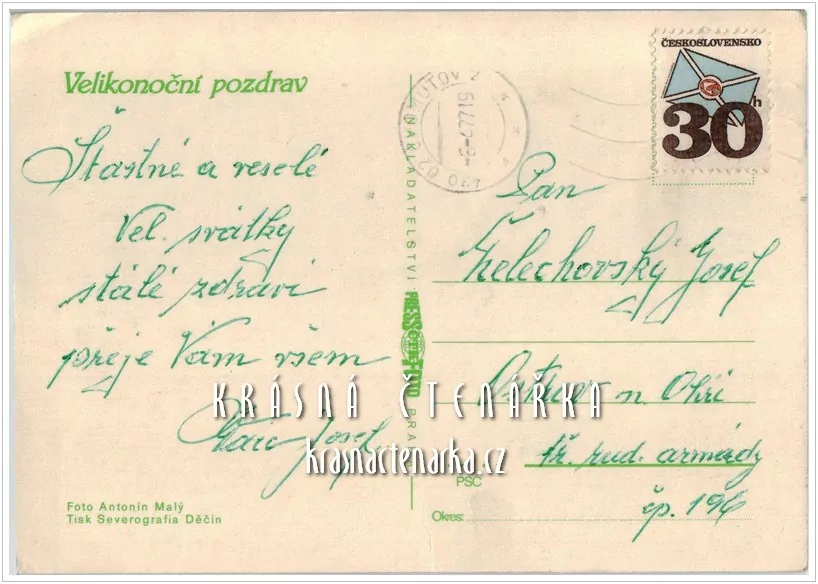 Velikonoční pozdrav
Šťastné a veselé
Vel. svátky
stálé zdraví
přeje Vám všem
Josef
Foto Antonín Malý
Tisk Severografia Děčín
NAKLADATELSTVÍ PRESSFOTO PRAHA
ČESKOSLOVENSKO
30h
-6.-4.77-19
Pan
Želechovský Josef
Ostrov n. Ohří
tř. rud. armády
PSČ
čp. 196
Okres:
KRÁSNÁ ČTENÁŘKA
krasnactenarka.cz